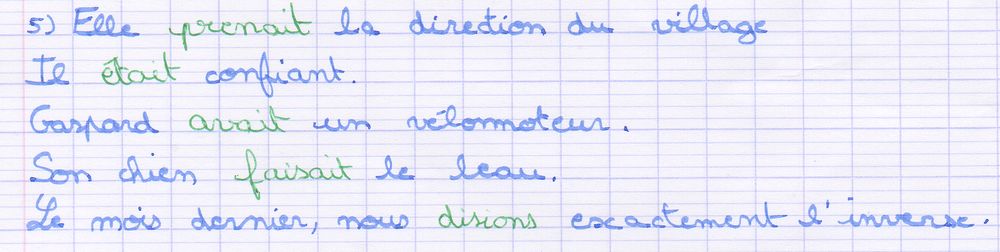 5) Elle prenait la direction du village
Il était confiant.
Gaspard avait un vélomoteur.
Son chien faisait le beau.
Le mois dernier, nous disions exactement l'inverse.